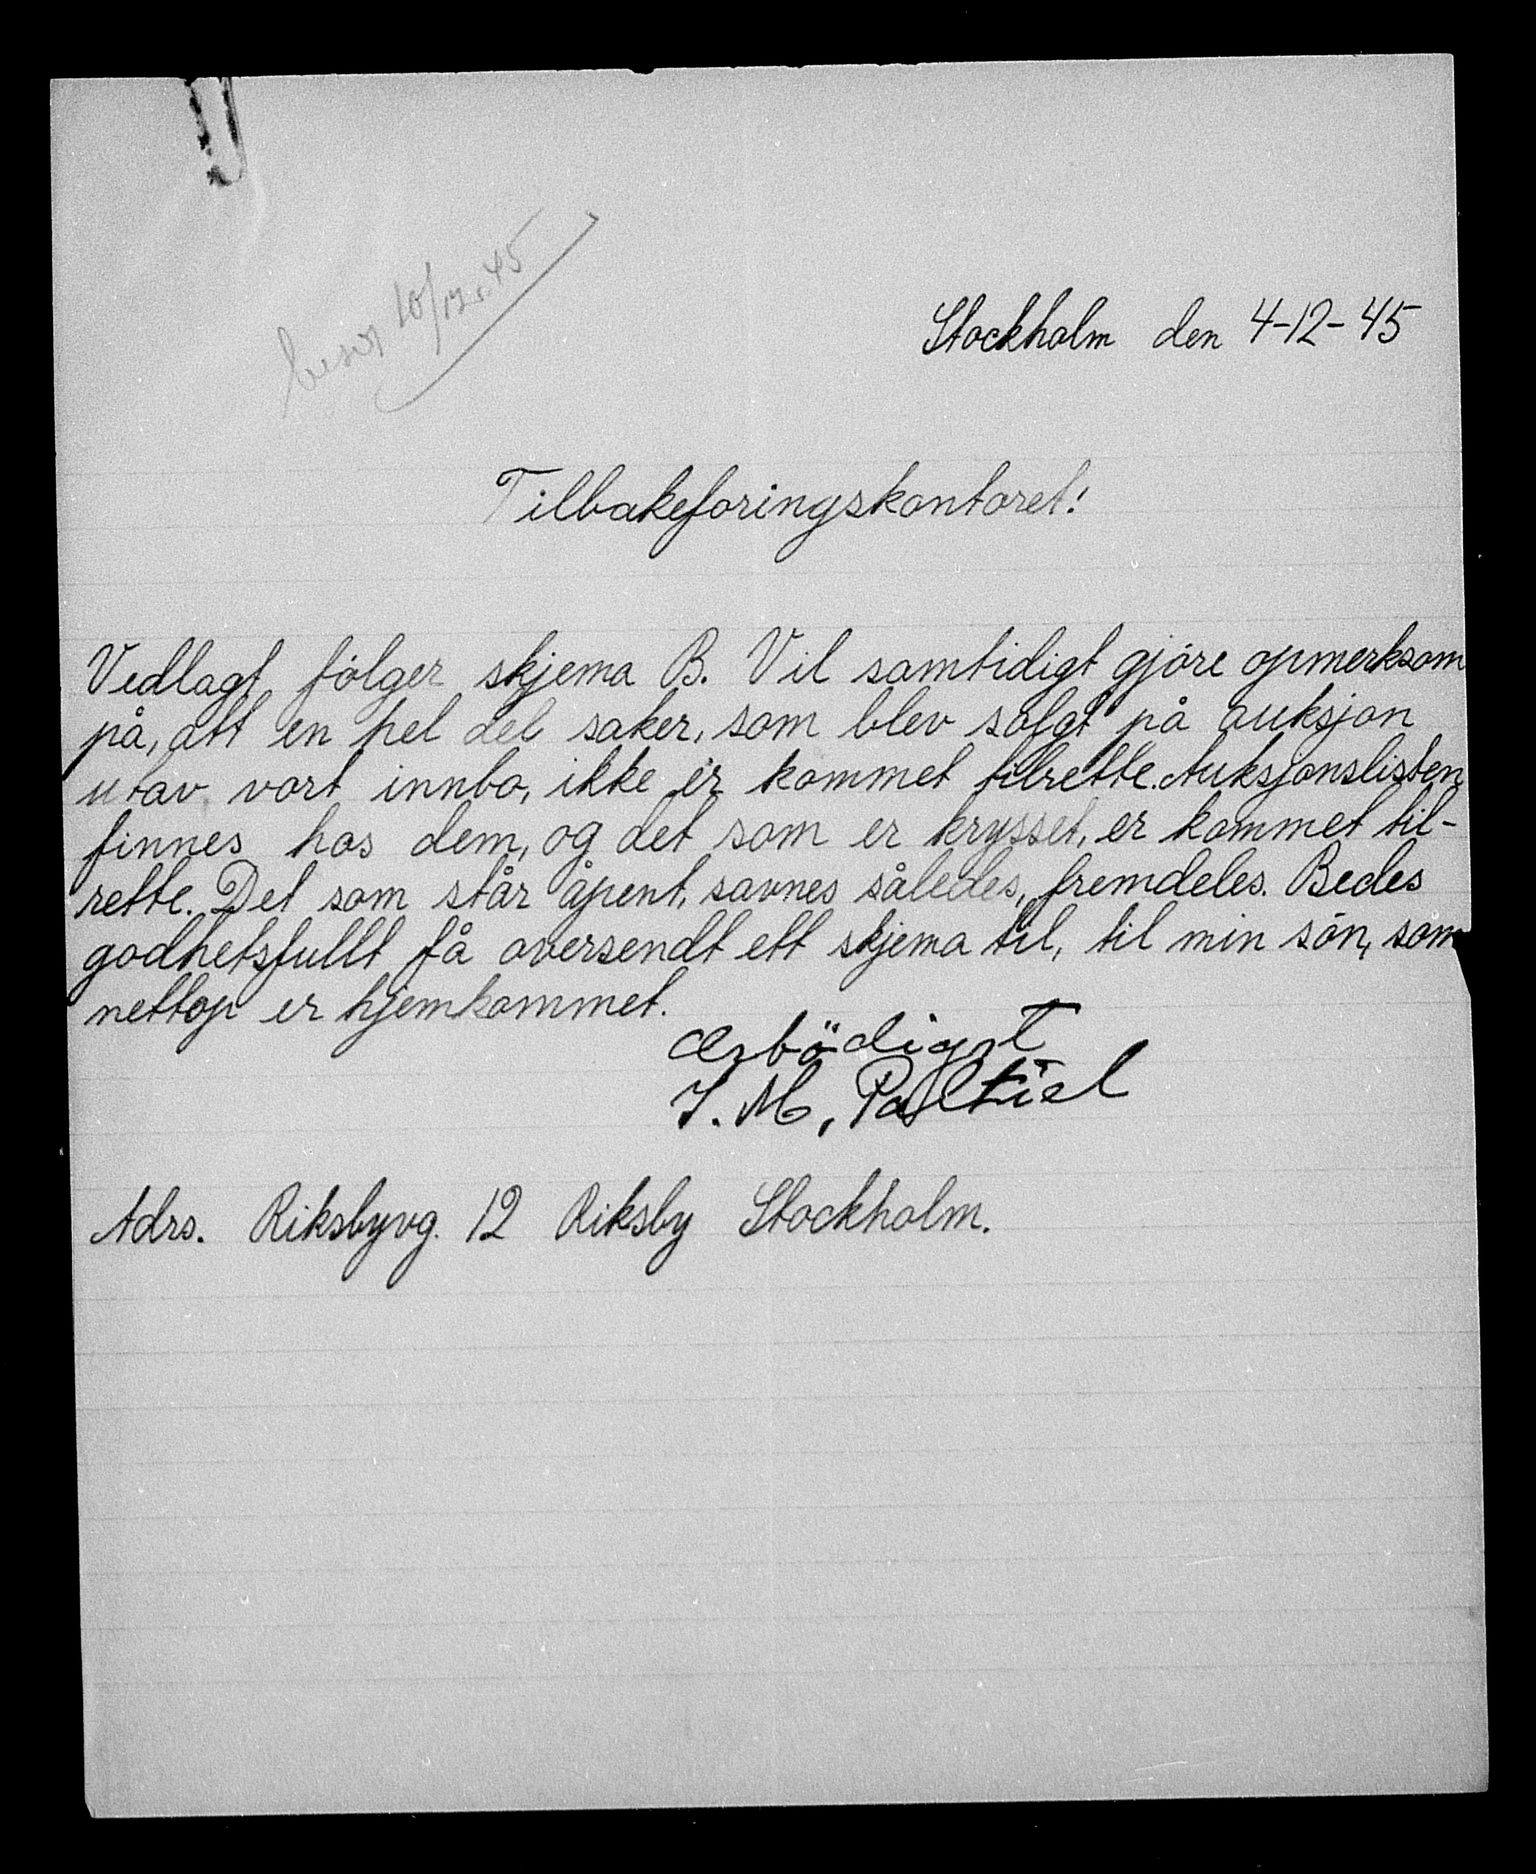 besv 10/12.45
Stockholm den 4-12-45
Tilbakeföringskontoret!
Vedlagt fölger skjema B. Vil samtidigt gjöre opmerksom
på, att en hel del saker, som blev solgt på auksjon
utav vort innbo, ikke er kommet tilrette. Auksjonslisten
finnes hos dem, og det som er krysset, er kommet til-
rette. Det som står åpent, savnes således, fremdeles. Bedes
godhetsfullt få oversendt ett skjema til, til min sön, som
nettop er hjemkommet.
Ærbödigst
I. M, Paltiel
Adrs. Riksbyvg. 12 Riksby Stockholm.